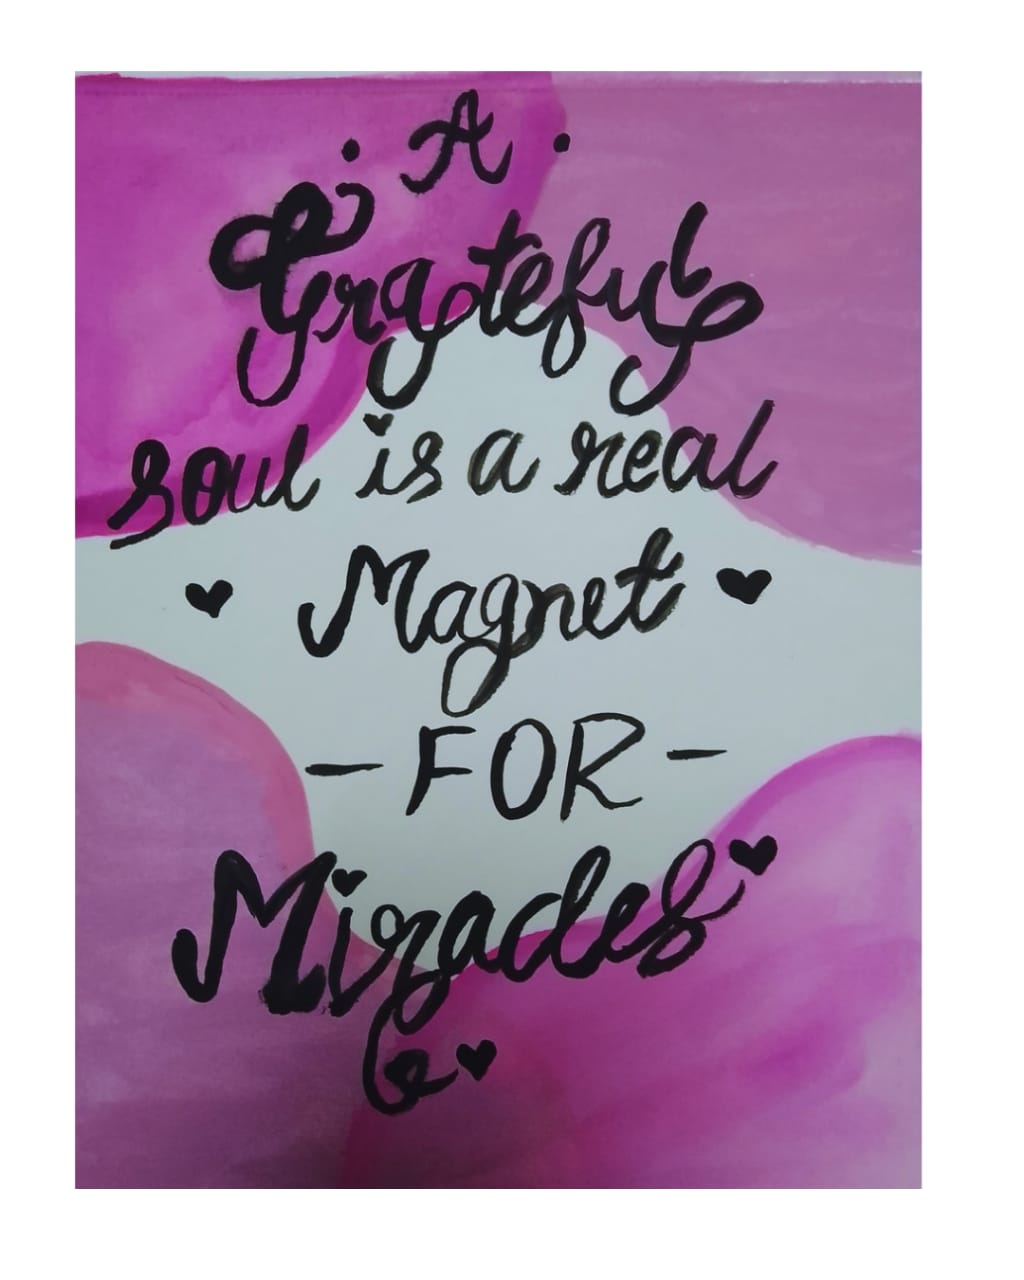 A
Grateful
soul is a real
Magnet
- FOR -
Miracles